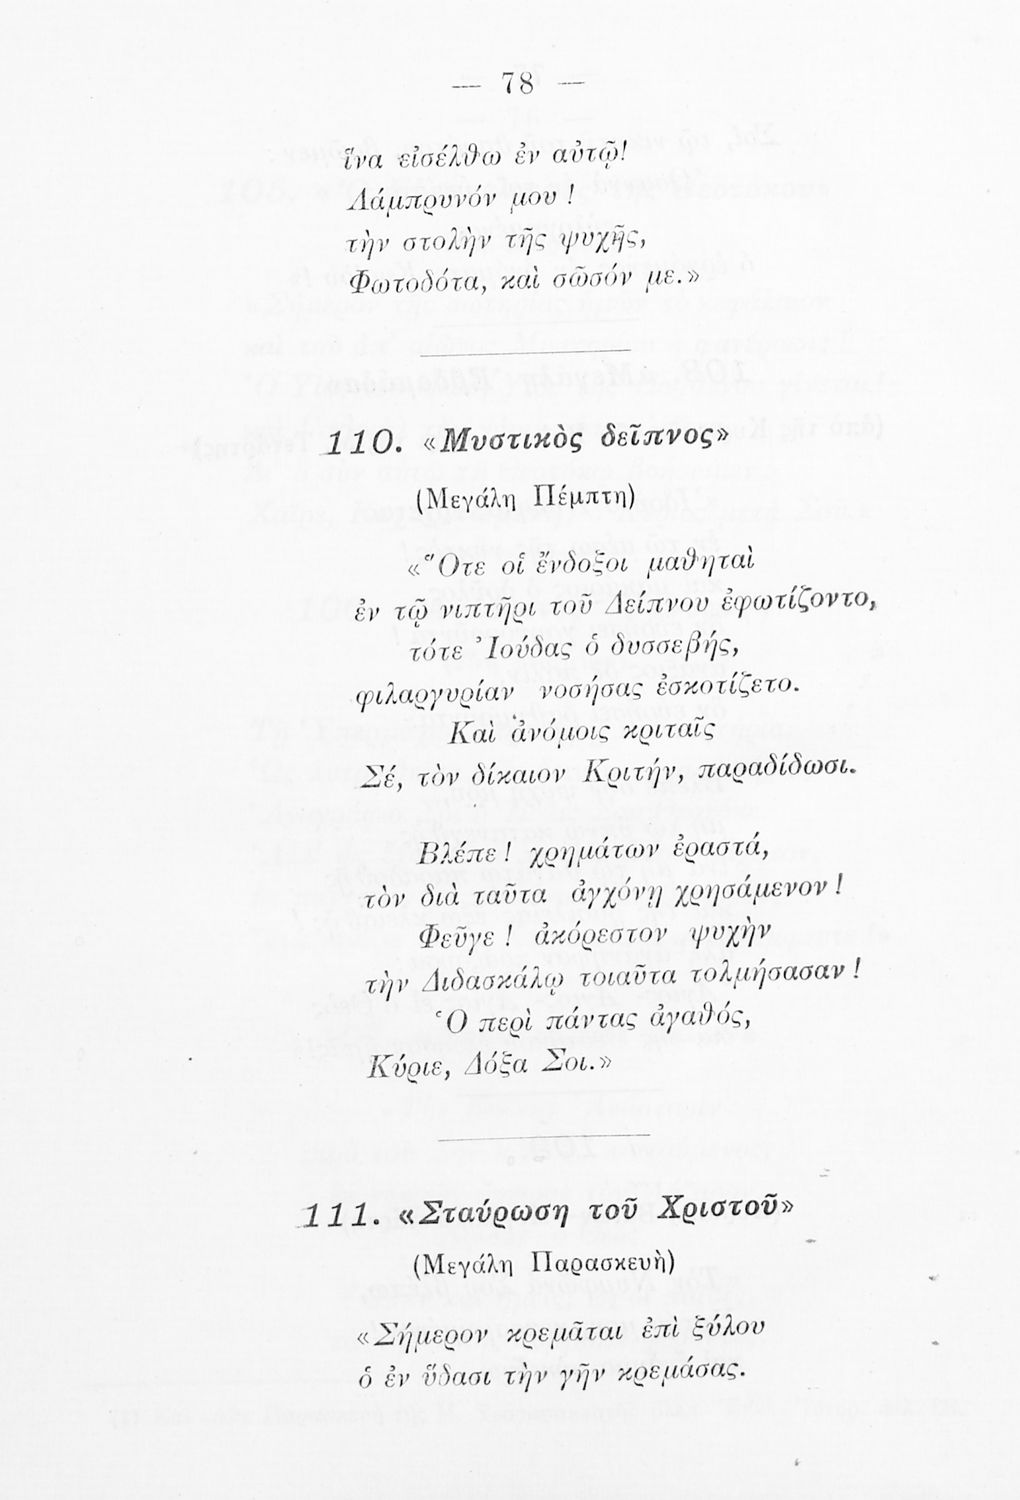 — 78 —
ἵνα εἰσέλθω ἐν αὐτῷ!
Λάμπρυνόν μου !
τὴν στολὴν τῆς ψυχῆς,
Φωτοδότα, καὶ σῶσόν με.»
110. «Μυστικὸς δεῖπνος»
(Μεγάλη Πέμπτη)
«Ὅτε οἱ ἔνδοξοι μαθηταὶ
ἐν τῷ νιπτῆρι τοῦ Δείπνου ἐφωτίζοντο,
τότε Ἰούδας ὁ δυσσεβής,
φιλαργυρίαν νοσήσας ἐσκοτίζετο.
Καὶ ἀνόμοις κριταῖς
Σέ, τὸν δίκαιον Κριτήν, παραδίδωσι.
Βλέπε ! χρημάτων ἐραστά,
τὸν διὰ ταῦτα ἀγχόνῃ χρησάμενον !
Φεῦγε ! ἀκόρεστον ψυχὴν
τὴν Διδασκάλῳ τοιαῦτα τολμήσασαν !
Ὁ περὶ πάντας ἀγαθός,
Κύριε, Δόξα Σοι.»
111. «Σταύρωση τοῦ Χριστοῦ»
(Μεγάλη Παρασκευὴ)
«Σήμερον κρεμᾶται ἐπὶ ξύλου
ὁ ἐν ὕδασι τὴν γῆν κρεμάσας.